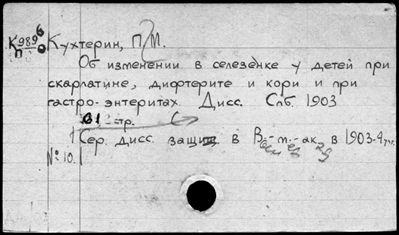 К 9896 Кухтерин, П. М.
п
Об изменении в селезенке у детей при
скарлатине, дифтерите и кори и при
гастро-энтеритах. Дисс. Спб. 1903
61 стр.
Сер. дисс. защищ в В- м- ак. в 1903-4 гг.
№ 10.